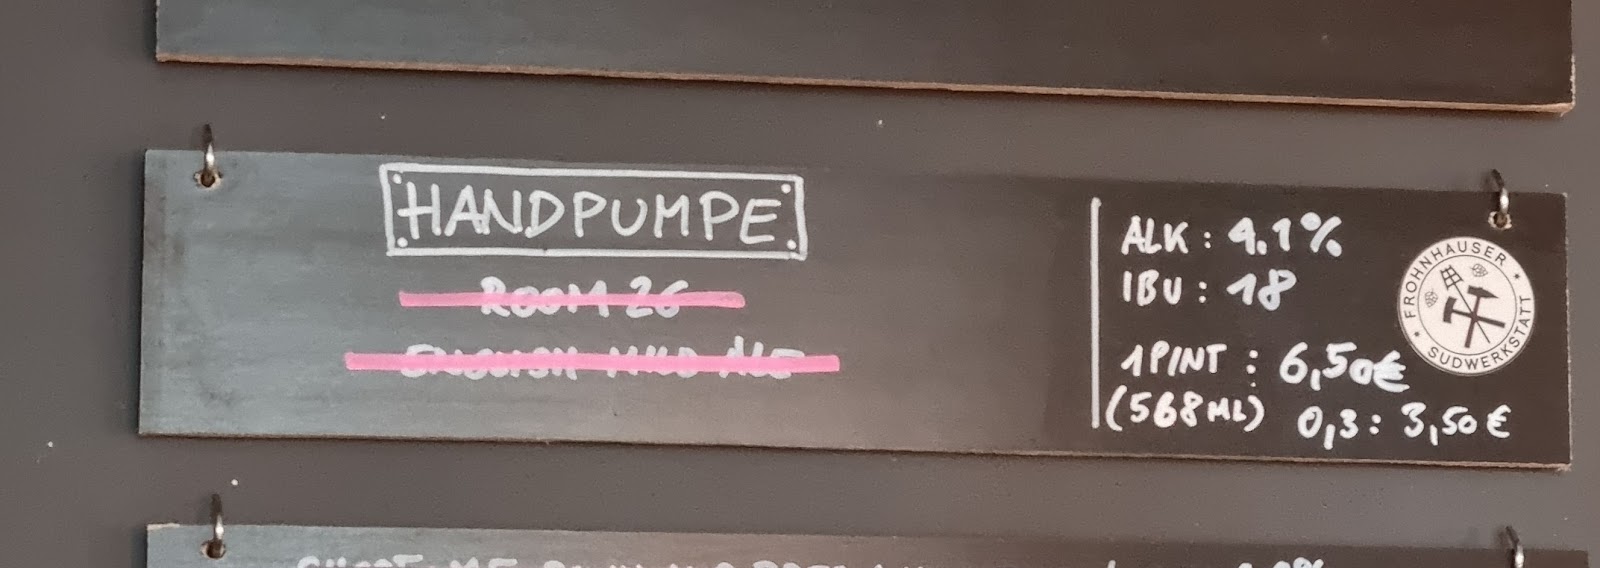 HANDPUMPE
ROOM 26
ENGLISH MILD ALE
ALK : 4.1%
IBU : 18
1 PINT : 6,50€
(568ML) 0,3 : 3,50€
FROHNHAUSER
SUDWERKSTATT